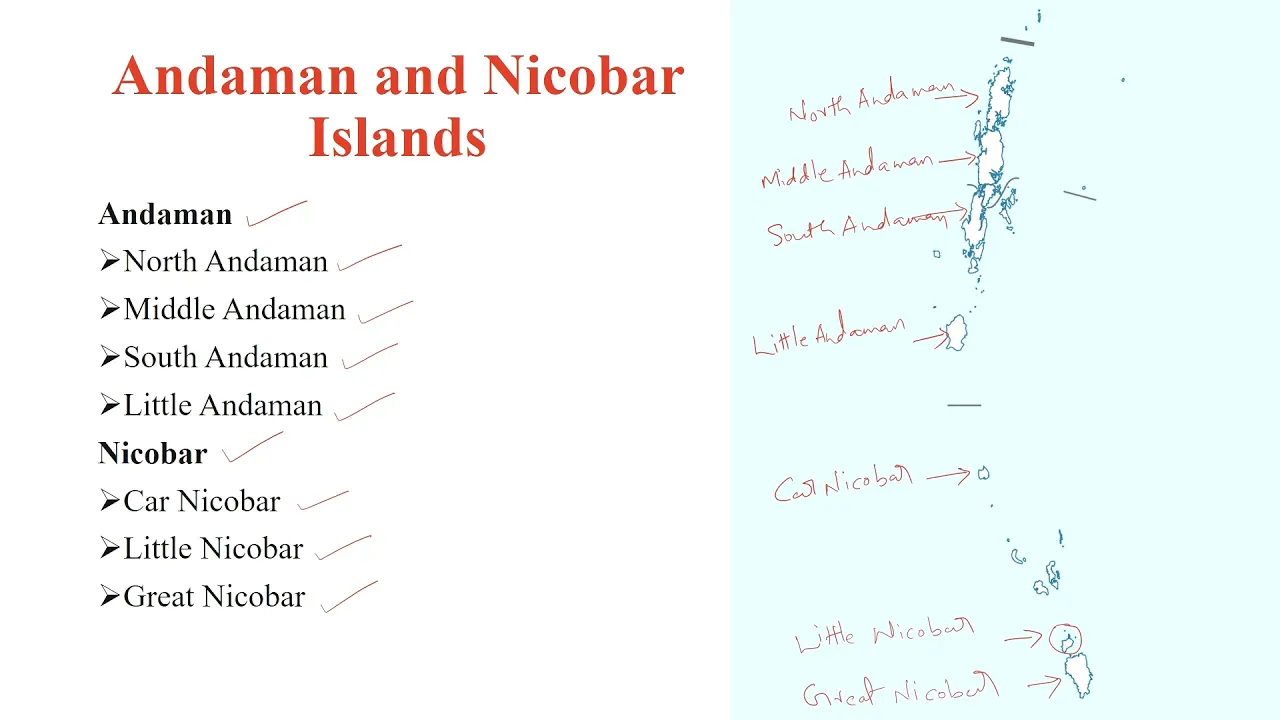 Andaman and Nicobar
Islands
Andaman
➢North Andaman
➢Middle Andaman
➢South Andaman
➢Little Andaman
Nicobar
➢Car Nicobar
➢Little Nicobar
➢Great Nicobar
North Andaman
Middle Andaman
South Andaman
Little Andaman
Car Nicobar
Little Nicobar
Great Nicobar